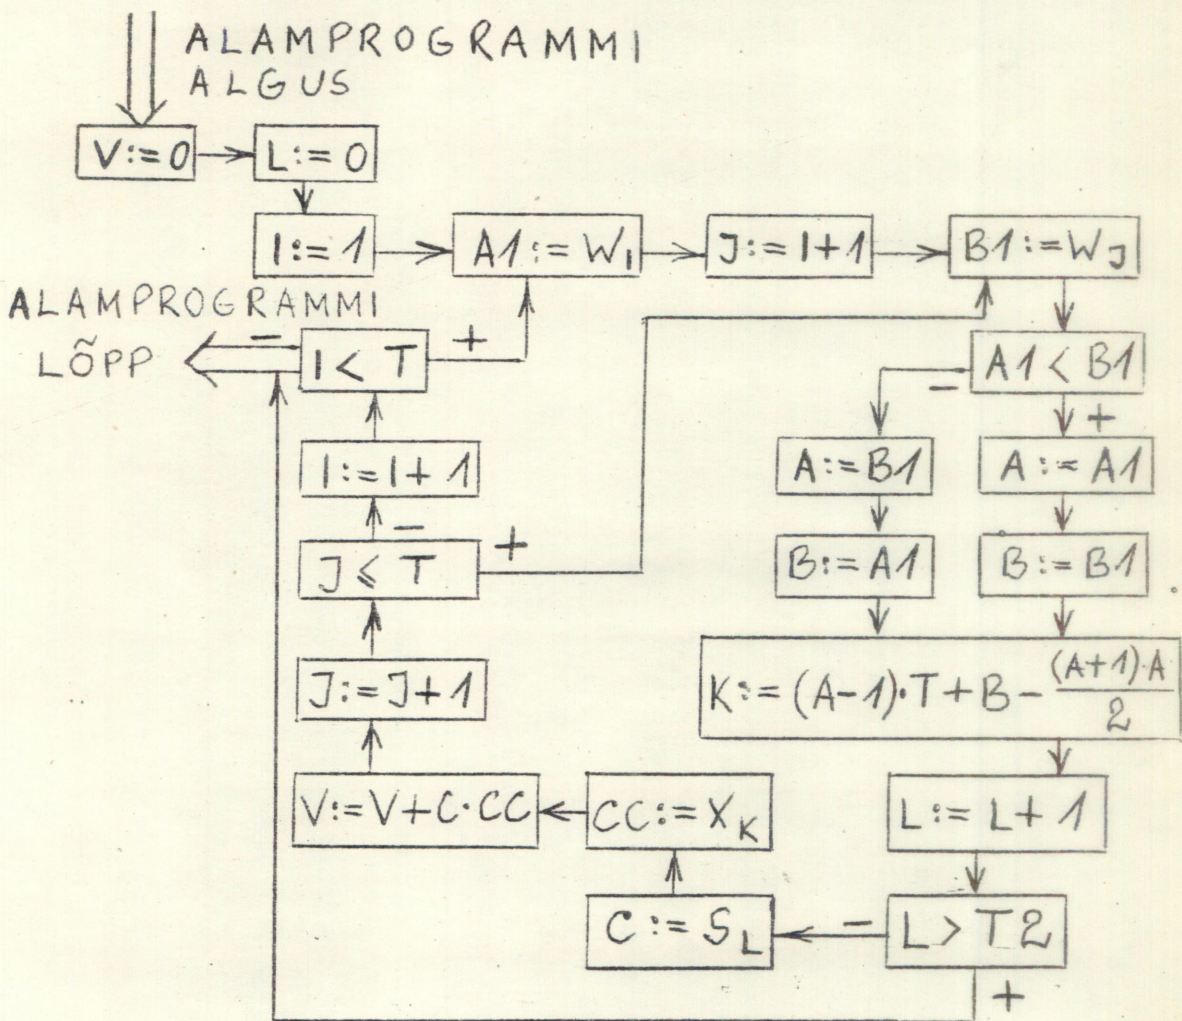 ALAMPROGRAMMI
ALGUS
V:=0
L:=0
I:=1
A1:=W_I
J:=I+1
B1:=W_J
ALAMPROGRAMMI
LÕPP
-
I < T
+
A1 < B1
-
+
I:=I+1
A:=B1
A:=A1
-
J ≤ T
+
B:=A1
B:=B1
J:=J+1
K:=(A-1)·T+B-(A+1)·A/2
V:=V+C·CC
CC:=X_K
L:=L+1
C:=S_L
-
L > T2
+